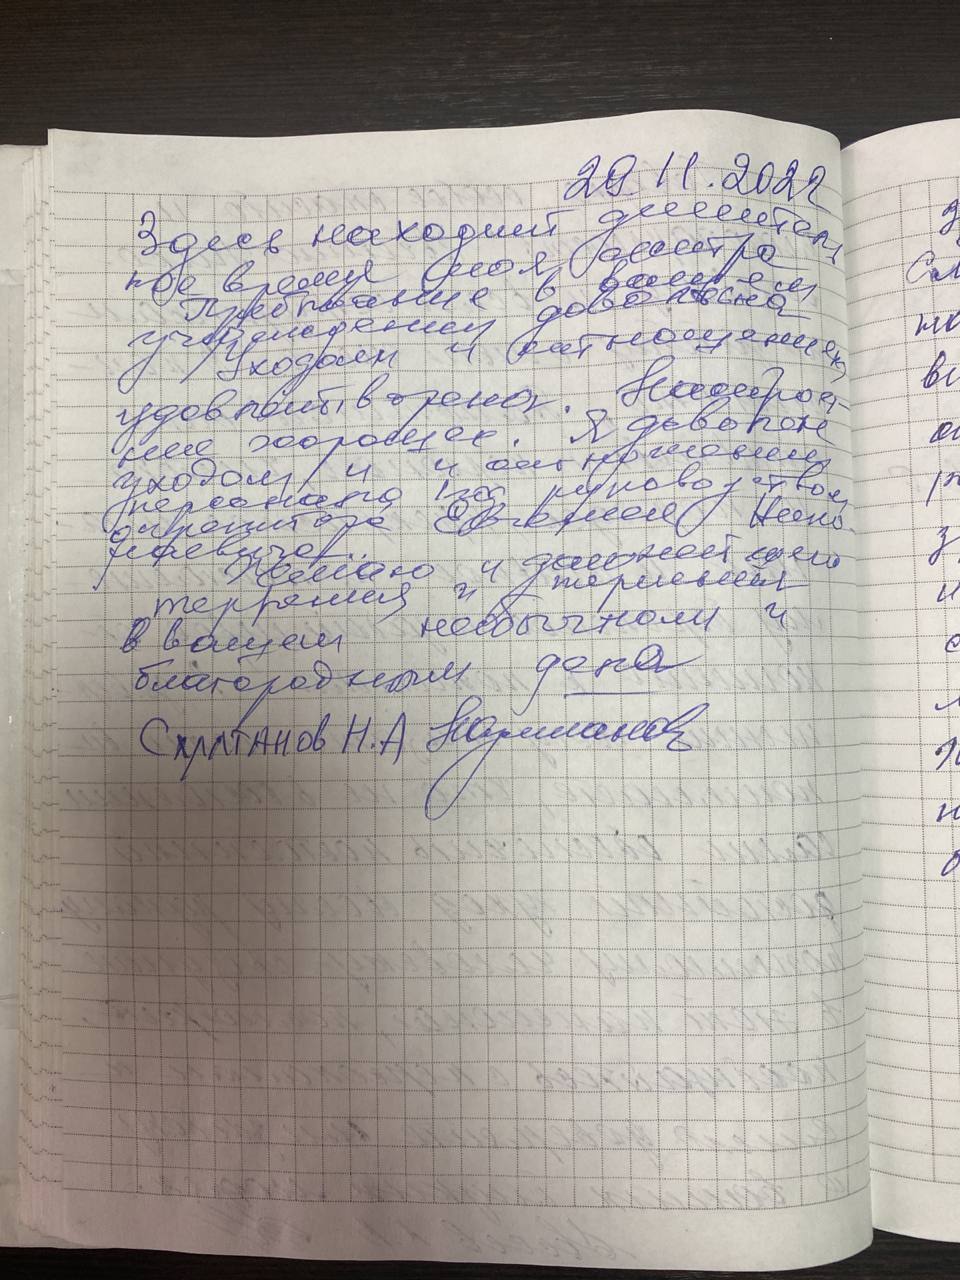 29 11.2022
Здесь находит длител
ное время моя сестра
Пребывание в вашем
учреждении довольна
Уходом и отношением
удовлетворена. Настрое-
ние хорошее. Я доволен
уходом и и отношением
персонала под руководством
директора
Желаю и дальнейшего
терпения и терпения
в вашем необычном и
благородным дела
Султанов Н.А